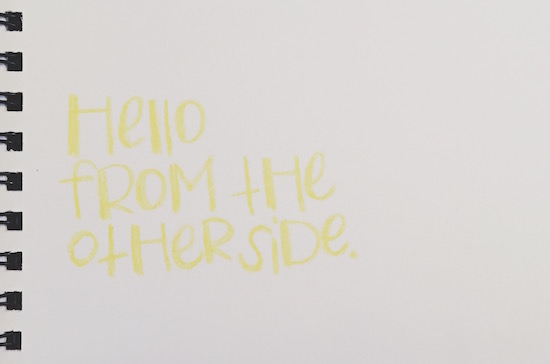 Hello
from the
otherside.